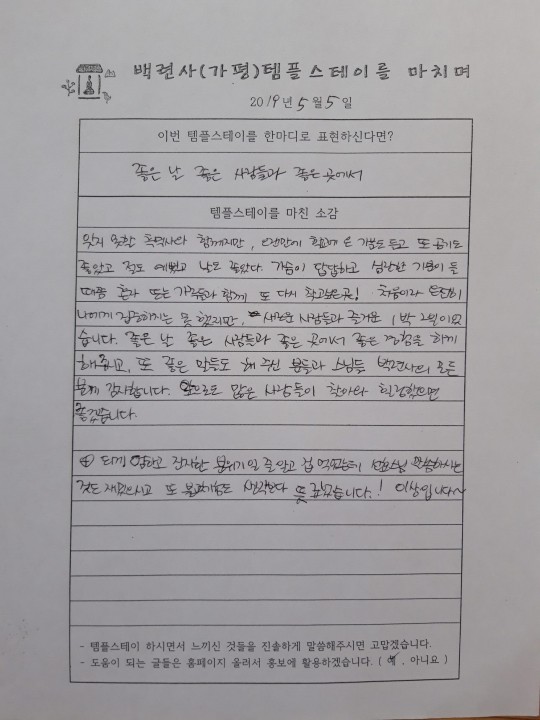 백련사(가평)템플스테이를 마치며
2019년 5월 5일
이번 템플스테이를 한마디로 표현하신다면?
좋은 날 좋은 사람들과 좋은 곳에서
템플스테이를 마친 소감
잊지 못할 추억사와 함께지만, 오랜만에 힐링 기분도 들고 또 공기도
좋았고 절도 예쁘고 날도 좋았다. 가슴이 답답하고 심난한 기분이 들
때쯤 혼자 또는 가족들과 함께 또 다시 찾고싶은곳! 처음이라 온전히
나에게 집중하지는 못 했지만, 새로운 사람들과 즐거운 1박 2일이었
습니다. 좋은 날 좋은 사람들과 좋은 곳에서 좋은 경험을 하게
해주시고, 또 좋은 말들도 해 주신 분들과 스님들 백련사의 모든
분께 감사합니다. 앞으로도 많은 사람들이 찾아와 힐링했으면
좋겠습니다.
⊕ 되게 엄하고 진지한 분위기일 줄 알고 겁 먹었는데 스님 말씀하시는
것도 재밌으시고 또 불교체험도 생각보다 뜻 깊었습니다.! 이상입니다~
- 템플스테이 하시면서 느끼신 것들을 진솔하게 말씀해주시면 고맙겠습니다.
- 도움이 되는 글들은 홈페이지 올려서 홍보에 활용하겠습니다. ( 예, 아니요 )